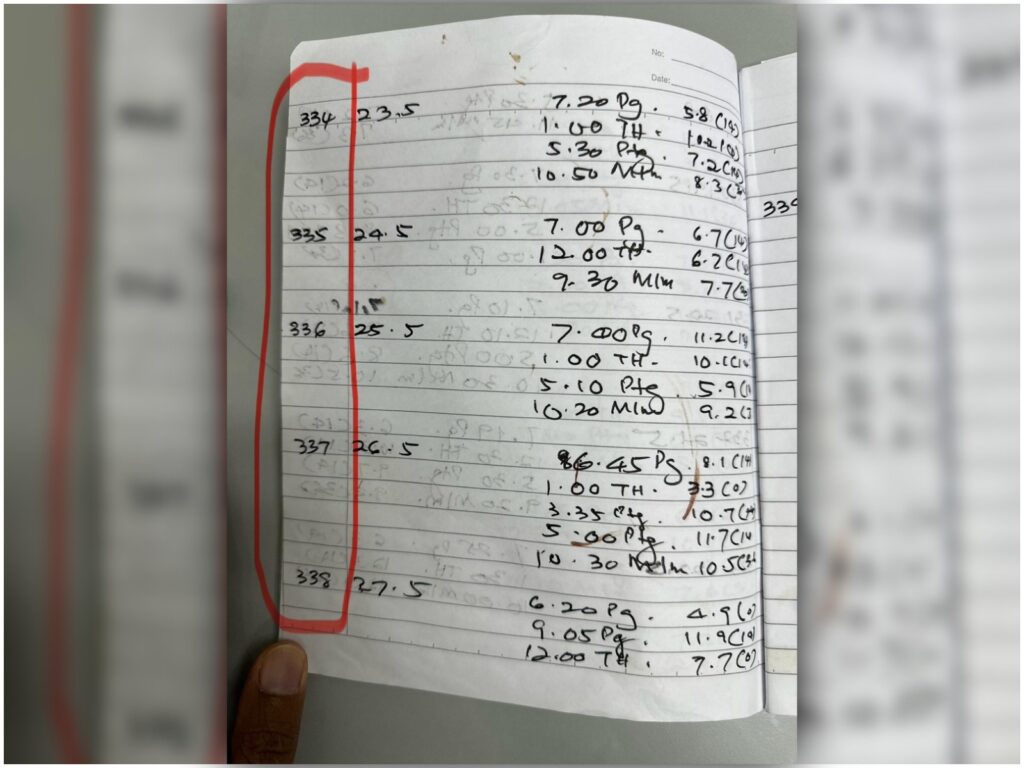 No:
Date:
334 23.5 7.20 Pg. 5.8 (14)
1.00 TH.
5.30 Ptg. 7.2 (14
10.50 Mlm 8.3 (3
335 24.5 7.00 Pg. 6.7 (14)
12.00 TH. 6.2 (14
9.30 Mlm 7.7 (3
336 25.5 7.00 Pg. 11.2 (14
1.00 TH. 10.1 (14
5.10 Ptg 5.9 (1
10.20 Mlm 9.2 (3
337 26.5 6.45 Pg. 8.1 (14
1.00 TH. 3.3 (0)
3.35 Ptg. 10.7 (14
5.00 Ptg. 11.7 (14
10.30 Mlm 10.5 (34
338 27.5
6.20 Pg. 4.9 (0)
9.05 Pg. 11.9 (14)
12.00 TH. 7.7 (0)
339